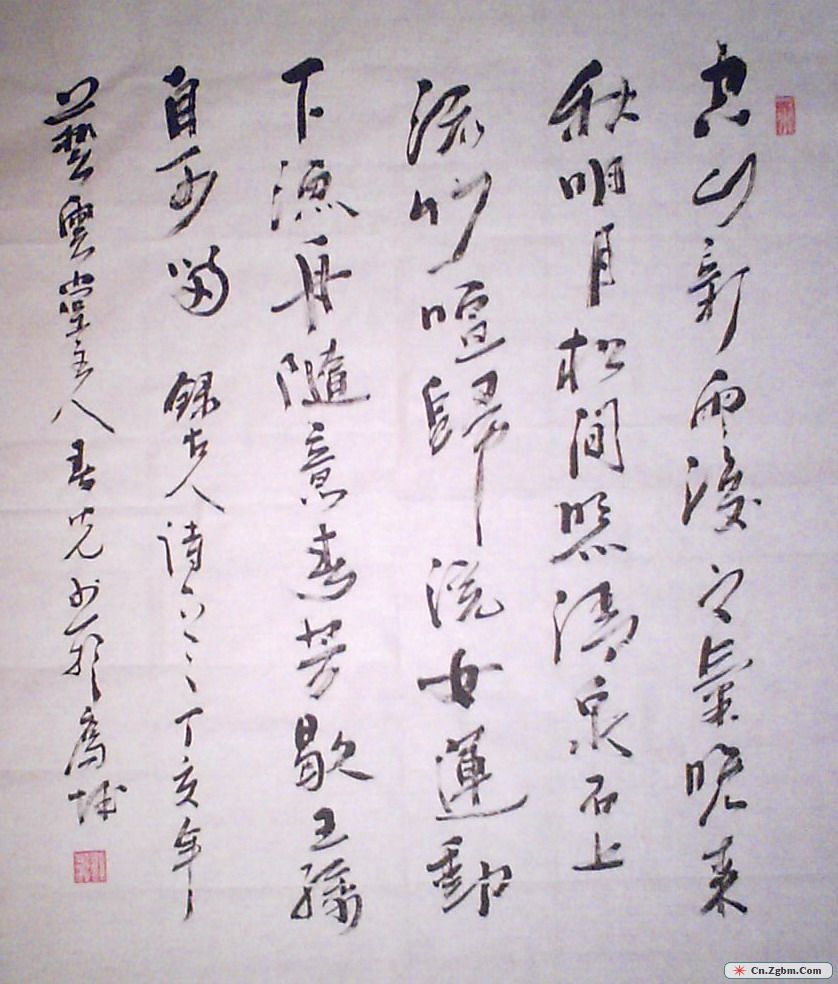 空山新雨後天氣晚來
秋明月松間照清泉石上
流竹喧歸浣女蓮動
下漁舟隨意春芳歇王孫
自可留 錄古人詩 丁亥年
藝雲堂主人春光书於
Cn.Zgbm.Com